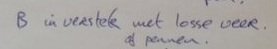 B in verstek met losse veer.
of pennen.